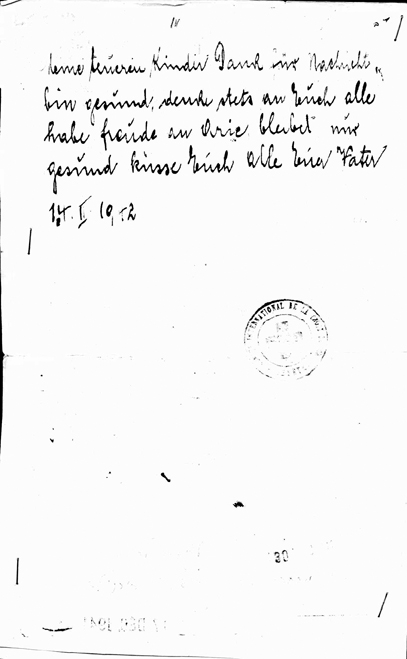 IV
teueren Kinder Dank für Nachricht
bin gesund, denke stets an Euch alle
habe freude an Arie bleibet mir
gesund küsse Euch Alle Euer Vater
14. I. 1942
INTERNATIONAL DE LA
30
DEC 1941